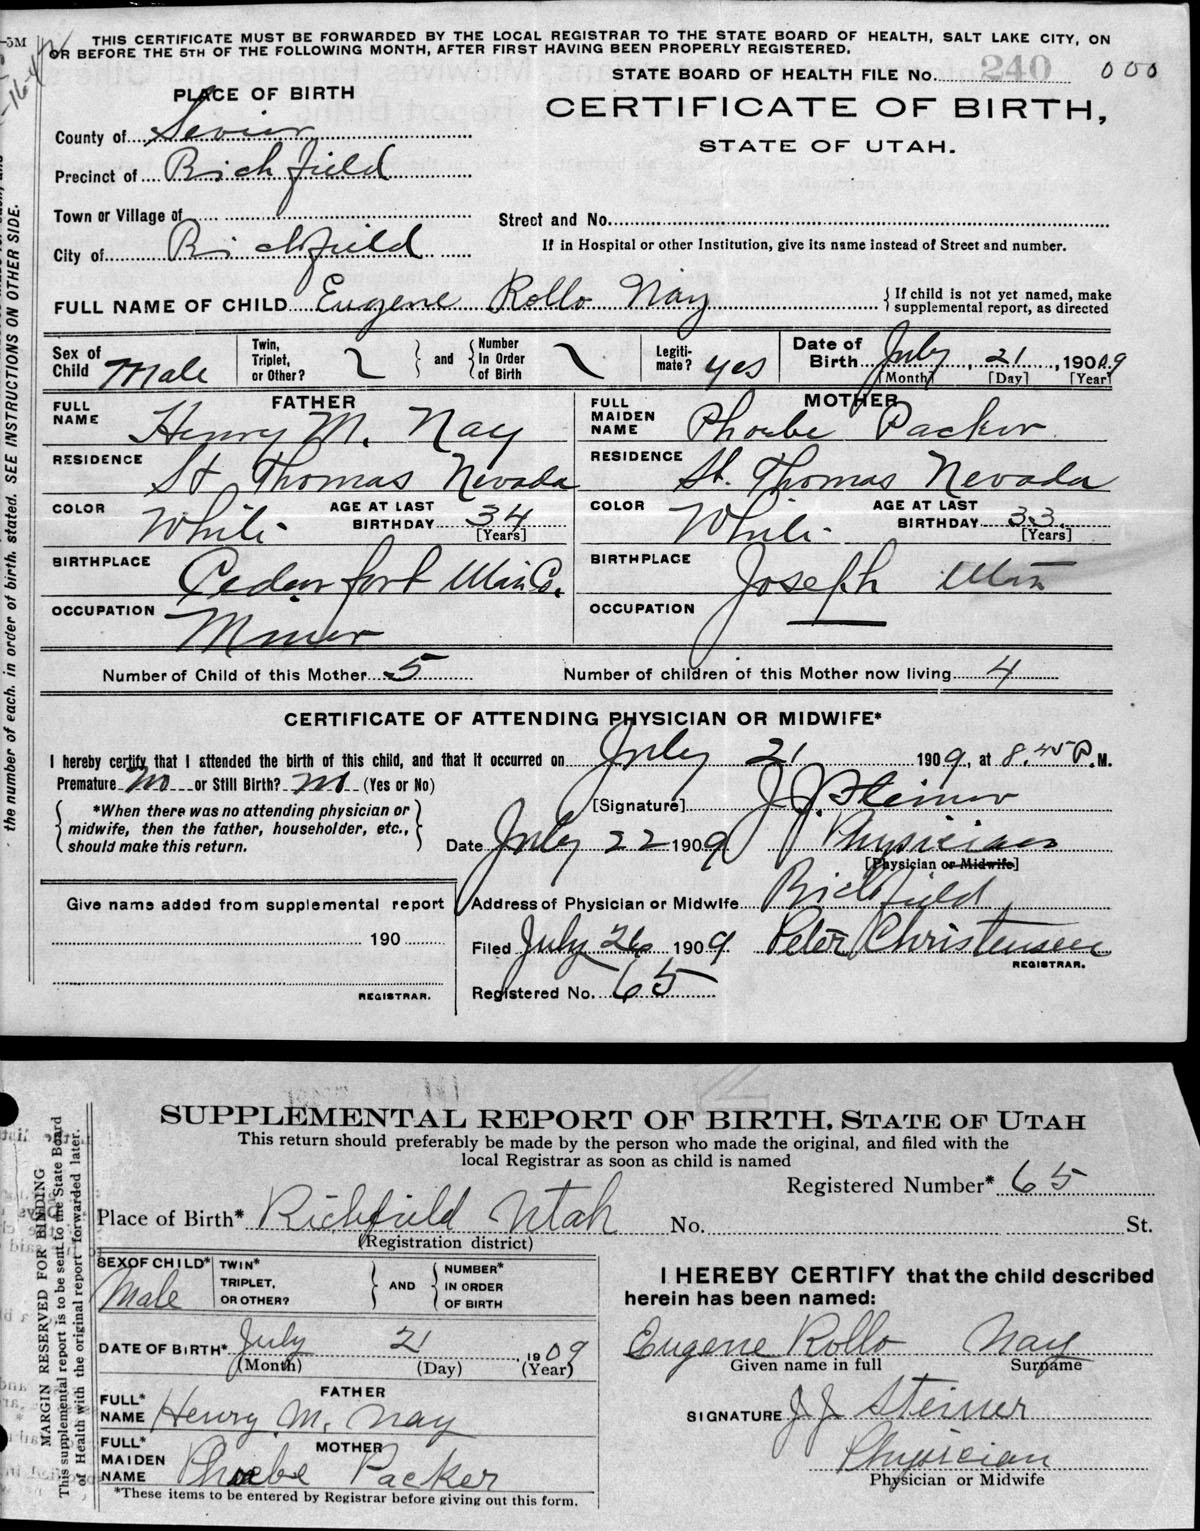 THIS CERTIFICATE MUST BE FORWARDED BY THE LOCAL REGISTRAR TO THE STATE BOARD OF HEALTH, SALT LAKE CITY, ON
OR BEFORE THE 5TH OF THE FOLLOWING MONTH, AFTER FIRST HAVING BEEN PROPERLY REGISTERED.
STATE BOARD OF HEALTH FILE No. 240 000
PLACE OF BIRTH
CERTIFICATE OF BIRTH,
STATE OF UTAH.
County of Sevier
Precinct of Richfield
Town or Village of
Street and No.
City of Richfield
If in Hospital or other Institution, give its name instead of Street and number.
FULL NAME OF CHILD Eugene Rollo Nay
{ If child is not yet named, make
supplemental report, as directed
Sex of Child Male
Twin, Triplet, or Other? } and { Number In Order of Birth
Legiti-mate? yes
Date of Birth July 21, 1909
[Month] [Day] [Year]
FATHER
FULL NAME Henry M. Nay
MOTHER
FULL MAIDEN NAME Phoebe Packer
RESIDENCE St Thomas Nevada
RESIDENCE St. Thomas Nevada
COLOR White AGE AT LAST BIRTHDAY 34 [Years]
COLOR White AGE AT LAST BIRTHDAY 33 [Years]
BIRTHPLACE Cedar fort Utah Co.
BIRTHPLACE Joseph Utah
OCCUPATION Miner
OCCUPATION
Number of Child of this Mother 5
Number of children of this Mother now living 4
CERTIFICATE OF ATTENDING PHYSICIAN OR MIDWIFE*
I hereby certify that I attended the birth of this child, and that it occurred on July 21 1909, at 8.45 P.M.
Premature No or Still Birth? No (Yes or No)
*When there was no attending physician or
midwife, then the father, householder, etc.,
should make this return.
[Signature] J J Steiner
Date July 22 1909 Physician
[Physician or Midwife]
Give name added from supplemental report
190
REGISTRAR.
Address of Physician or Midwife Richfield
Filed July 26 1909 Peter Christensen
REGISTRAR.
Registered No. 65
the number of each, in order of birth, stated. SEE INSTRUCTIONS ON OTHER SIDE.
SUPPLEMENTAL REPORT OF BIRTH, STATE OF UTAH
This return should preferably be made by the person who made the original, and filed with the
local Registrar as soon as child is named
Registered Number* 65
Place of Birth* Richfield Utah No. St.
(Registration district)
SEX OF CHILD* Male
TWIN* TRIPLET, OR OTHER? } AND { NUMBER* IN ORDER OF BIRTH
DATE OF BIRTH* July 21, 1909
(Month) (Day) (Year)
FATHER
FULL* NAME Henry M. Nay
MOTHER
FULL* MAIDEN NAME Phoebe Packer
*These items to be entered by Registrar before giving out this form.
I HEREBY CERTIFY that the child described
herein has been named:
Eugene Rollo Nay
Given name in full Surname
SIGNATURE J J Steiner
Physician
Physician or Midwife
MARGIN RESERVED FOR BINDING
This supplemental report is to be sent to the State Board
of Health with the original report forwarded later.